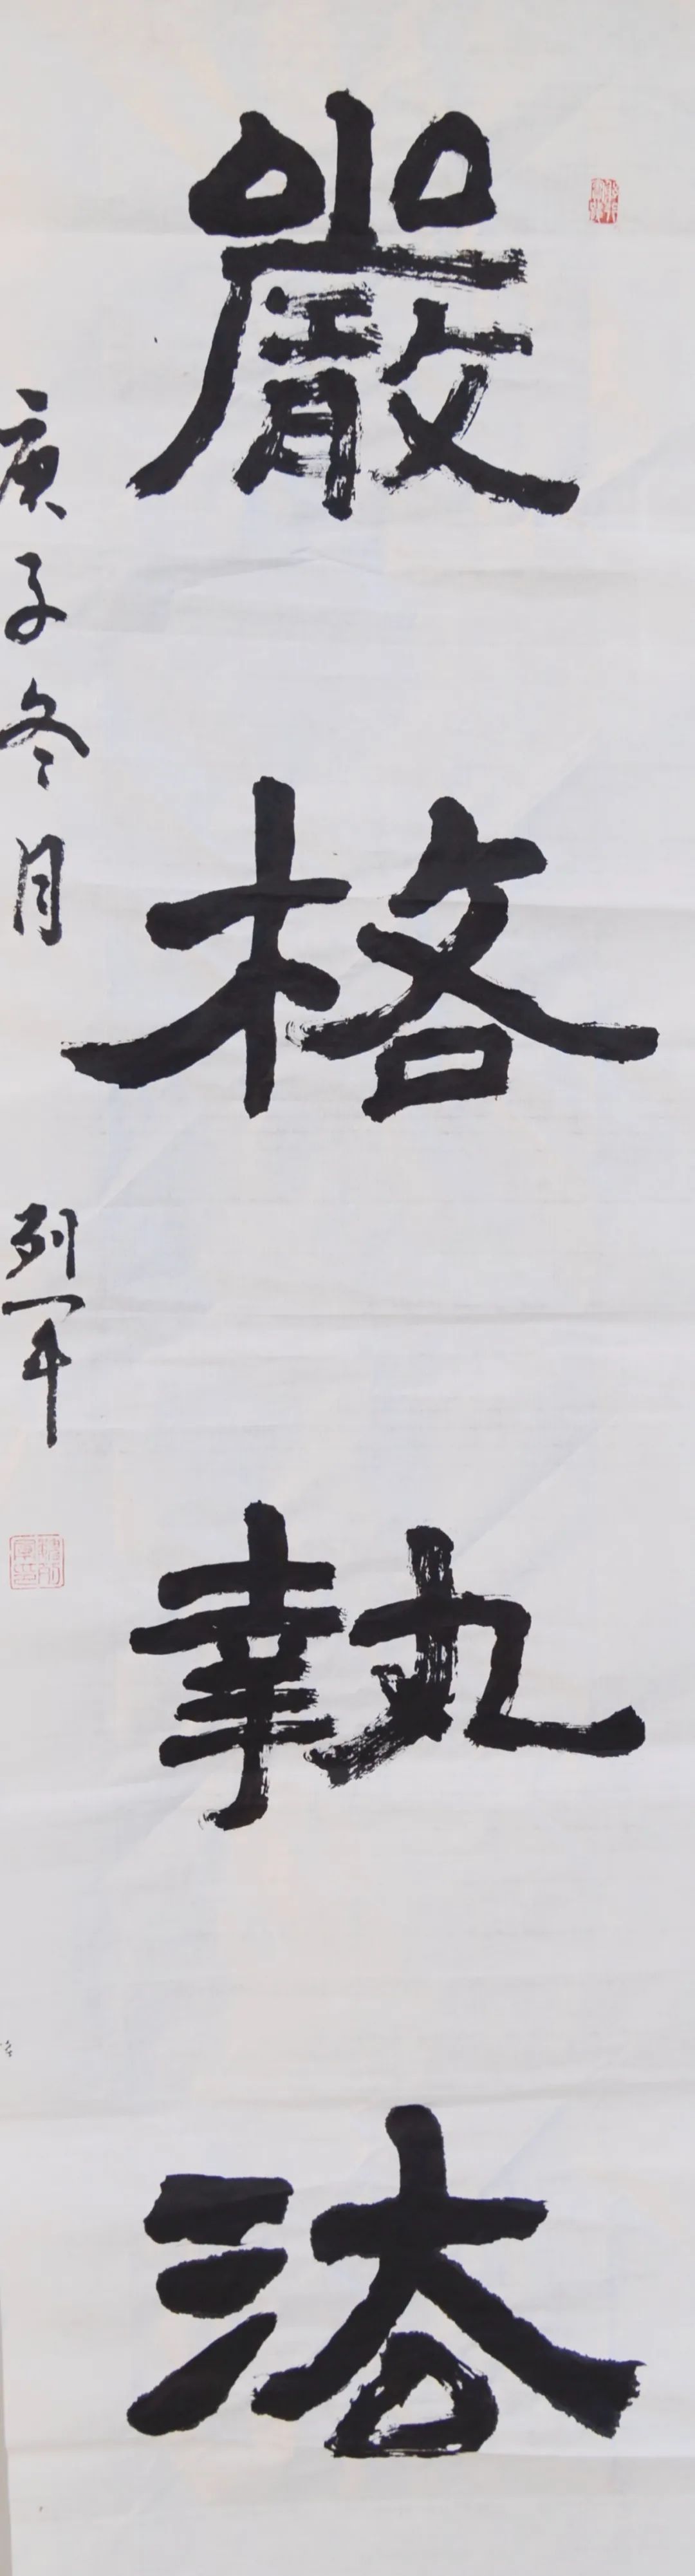 嚴格執法
庚子冬月
列軍